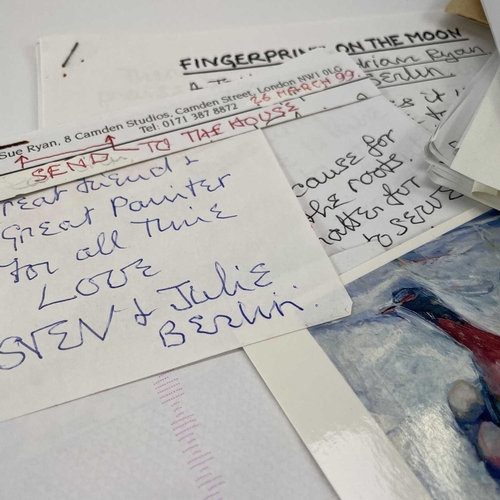 FINGERPRINTS ON THE MOON
Adrian Ryan
Berlin.
Sue Ryan, 8 Camden Studios, Camden Street, London NW1 0LG
Tel: 0171 387 8872
26 MARCH 99.
SEND TO THE HOUSE
reat friend &
Great Painter
for all Time
LOVE
SVEN & Julie
Berlin.
cause for
the roots.
matter for
to serve